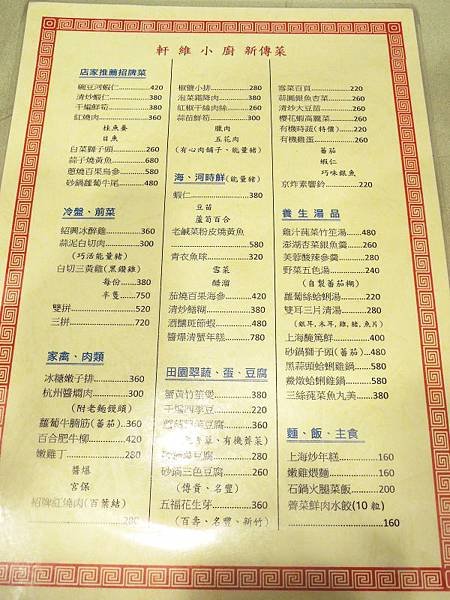 軒維小廚新傳菜
店家推薦招牌菜
豌豆河蝦仁.........420
清炒蝦仁...........380
干煸鮮筍...........380
紅燒肉.............360
桂魚羹
目魚
白菜獅子頭.........260
蒜子燒黃魚.........680
蔥燒百果烏參.......580
砂鍋蘿蔔牛尾.......480
冷盤、前菜
紹興冰醉雞.........360
蒜泥白切肉.........300
(巧活能量豬)
白切三黃雞(黑鑽雞)
每份...............380
半隻...............750
雙拼...............520
三拼...............720
家禽、肉類
冰糖嫩子排.........360
杭州醬燜肉.........300
(附老麵饅頭)
蘿蔔牛腩筋(蕃茄)...360
百合肥牛柳.........420
嫩雞丁.............280
醬爆
宮保
招牌紅燒肉(百葉結)
280
椒鹽小排...........280
泡菜霜降肉.........380
紅椒干絲肉絲.......260
蒜苗鮮筍...........300
臘肉
五花肉
(有心肉舖子、能量豬)
海、河時鮮(能量豬)
蝦仁...............380
豆苗
蘆筍百合
老鹹菜粉皮燒黃魚
580
青衣魚球...........320
雪菜
醋溜
茄燒百果海參.......320
清炒鱔糊...........380
酒釀斑節蝦.........480
醬爆清蟹年糕.......780
田園翠蔬、蛋、豆腐
蟹黃竹笙煲.........380
干煸四季豆.........220
豆腐...............260
有機菁菜)
豆腐...............220
砂鍋三色豆腐.......260
(傳貴、名豐)
五福花生芽.........360
(百壽、名豐、新竹)
雪菜百頁...........220
蒜園銀魚杏菜.......260
清炒大豆苗.........260
櫻花蝦高麗菜.......260
有機時蔬(特價).....220
有機雞蛋...........260
蕃茄
蝦仁
巧味銀魚
京炸素響鈴.........220
養生湯品
雞汁蒓菜竹笙湯.....480
澎湖杏菜銀魚羹.....260
芙蓉酸辣參羹.......280
野菜五色湯.........240
(自製蕃茄糊)
蘿蔔絲蛤蜊湯.......220
雙耳三片清湯.......280
(銀耳,木耳,雞,豬,魚片)
上海醃篤鮮.........400
砂鍋獅子頭(蕃茄)...480
黑蒜頭蛤蜊雞鍋.....580
蘿燉蛤蜊雞鍋.......580
三絲蒓菜魚丸美.....380
麵、飯、主食
上海炒年糕.........160
嫩雞煨麵...........160
石鍋火腿菜飯.......200
薺菜鮮肉水餃(10粒)
160